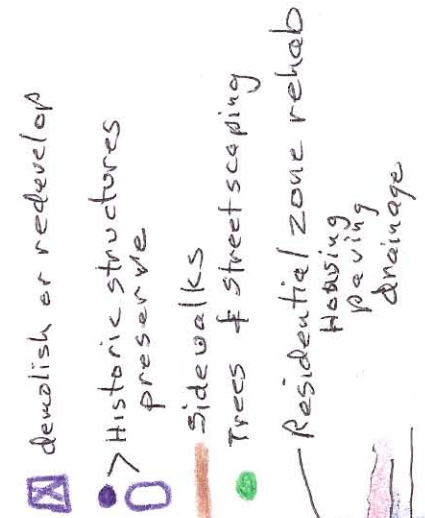 demolish or redevelop
> Historic structures
preserve
Sidewalks
Trees & streetscaping
Residential zone rehab
Housing
paving
drainage